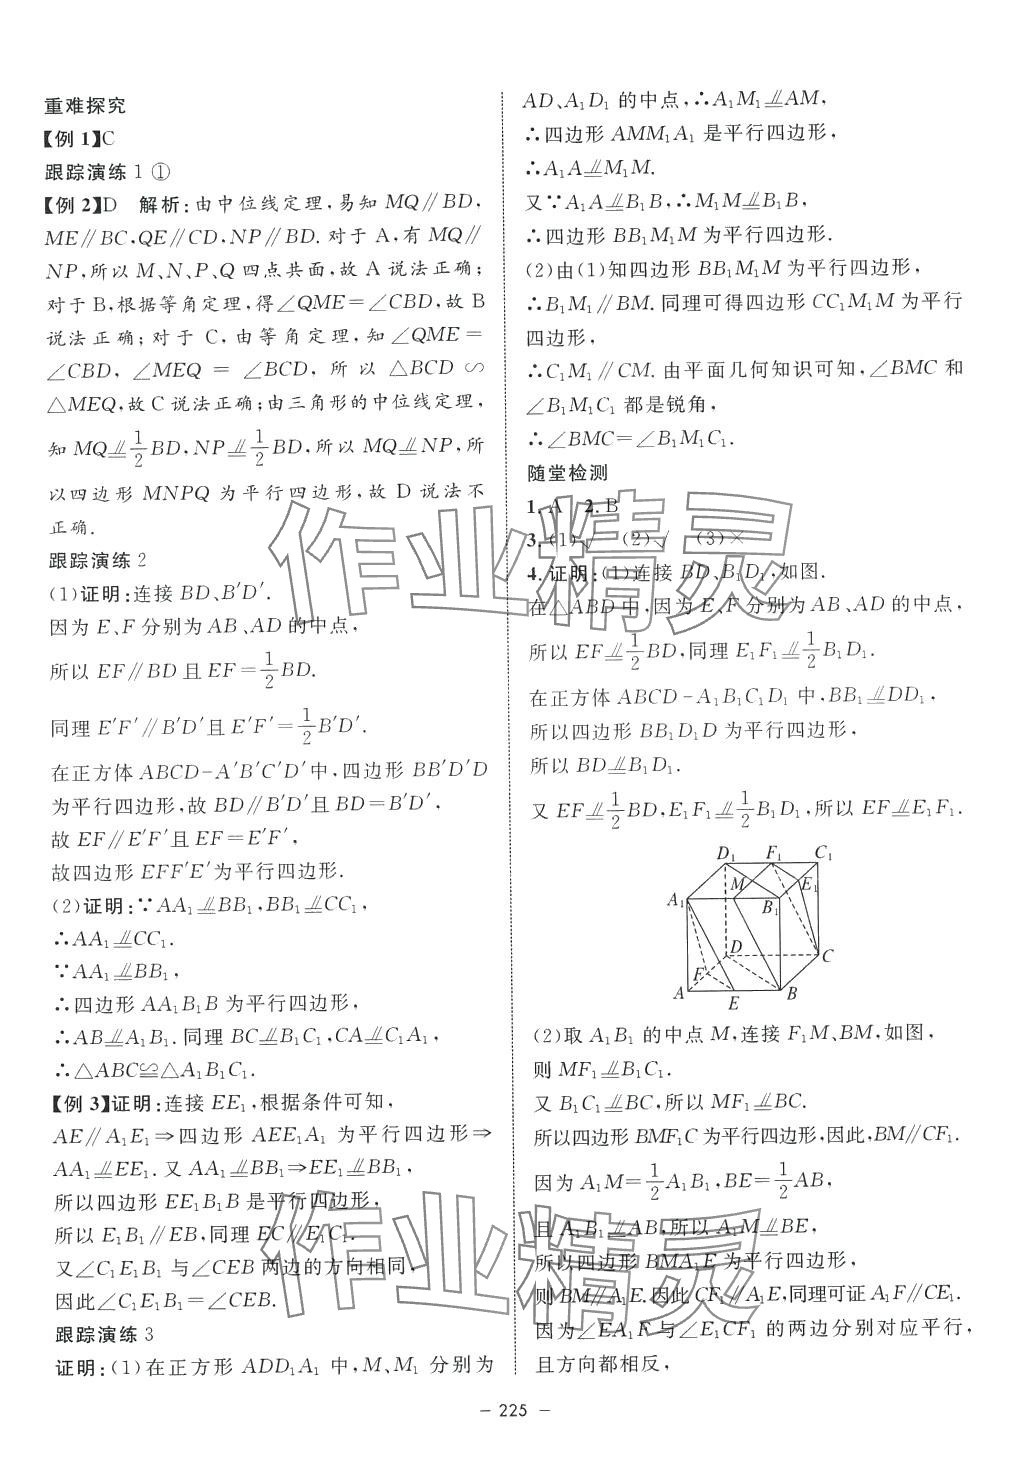 重难探究
【例 1】C
跟踪演练 1 ①
【例 2】D 解析:由中位线定理,易知 MQ∥BD,
ME∥BC,QE∥CD,NP∥BD.对于 A,有 MQ∥
NP,所以 M、N、P、Q 四点共面,故 A 说法正确;
对于 B,根据等角定理,得∠QME=∠CBD,故 B
说法正确;对于 C,由等角定理,知∠QME=
∠CBD,∠MEQ=∠BCD,所以 △BCD∽
△MEQ,故 C 说法正确;由三角形的中位线定理,
知 MQ⫽=1/2BD,NP⫽=1/2BD,所以 MQ⫽=NP,所
以四边形 MNPQ 为平行四边形,故 D 说法不
正确.
跟踪演练 2
(1)证明:连接 BD、B′D′.
因为 E、F 分别为 AB、AD 的中点,
所以 EF∥BD 且 EF=1/2BD.
同理 E′F′∥B′D′且 E′F′=1/2B′D′.
在正方体 ABCD-A′B′C′D′中,四边形 BB′D′D
为平行四边形,故 BD∥B′D′且 BD=B′D′,
故 EF∥E′F′且 EF=E′F′,
故四边形 EFF′E′为平行四边形.
(2)证明:∵AA₁⫽=BB₁,BB₁⫽=CC₁,
∴AA₁⫽=CC₁.
∵AA₁⫽=BB₁,
∴四边形 AA₁B₁B 为平行四边形,
∴AB⫽=A₁B₁.同理 BC⫽=B₁C₁,CA⫽=C₁A₁,
∴△ABC≌△A₁B₁C₁.
【例 3】证明:连接 EE₁,根据条件可知,
AE∥A₁E₁⇒四边形 AEE₁A₁ 为平行四边形⇒
AA₁⫽=EE₁.又 AA₁⫽=BB₁⇒EE₁⫽=BB₁,
所以四边形 EE₁B₁B 是平行四边形,
所以 E₁B₁∥EB,同理 EC∥E₁C₁.
又∠C₁E₁B₁ 与∠CEB 两边的方向相同,
因此∠C₁E₁B₁=∠CEB.
跟踪演练 3
证明:(1)在正方形 ADD₁A₁ 中,M、M₁ 分别为
AD、A₁D₁ 的中点,∴A₁M₁⫽=AM,
∴四边形 AMM₁A₁ 是平行四边形,
∴A₁A⫽=M₁M.
又∵A₁A⫽=B₁B,∴M₁M⫽=B₁B,
∴四边形 BB₁M₁M 为平行四边形.
(2)由(1)知四边形 BB₁M₁M 为平行四边形,
∴B₁M₁∥BM.同理可得四边形 CC₁M₁M 为平行
四边形,
∴C₁M₁∥CM.由平面几何知识可知,∠BMC 和
∠B₁M₁C₁ 都是锐角,
∴∠BMC=∠B₁M₁C₁.
随堂检测
1. A 2. B
3. (1)√ (2)√ (3)×
4. 证明:(1)连接 BD、B₁D₁,如图.
在△ABD 中,因为 E、F 分别为 AB、AD 的中点,
所以 EF⫽=1/2BD,同理 E₁F₁⫽=1/2B₁D₁.
在正方体 ABCD-A₁B₁C₁D₁ 中,BB₁⫽=DD₁,
所以四边形 BB₁D₁D 为平行四边形,
所以 BD⫽=B₁D₁.
又 EF⫽=1/2BD,E₁F₁⫽=1/2B₁D₁,所以 EF⫽=E₁F₁.
D₁ F₁ C₁
M E₁
A₁ B₁
D
C
F
A E B
(2)取 A₁B₁ 的中点 M,连接 F₁M、BM,如图,
则 MF₁⫽=B₁C₁.
又 B₁C₁⫽=BC,所以 MF₁⫽=BC.
所以四边形 BMF₁C 为平行四边形,因此,BM∥CF₁.
因为 A₁M=1/2A₁B₁,BE=1/2AB,
且 A₁B₁⫽=AB,所以 A₁M⫽=BE,
所以四边形 BMA₁E 为平行四边形,
则 BM∥A₁E.因此 CF₁∥A₁E,同理可证 A₁F∥CE₁.
因为∠EA₁F 与∠E₁CF₁ 的两边分别对应平行,
且方向都相反,
- 225 -
作业精灵
作业精灵